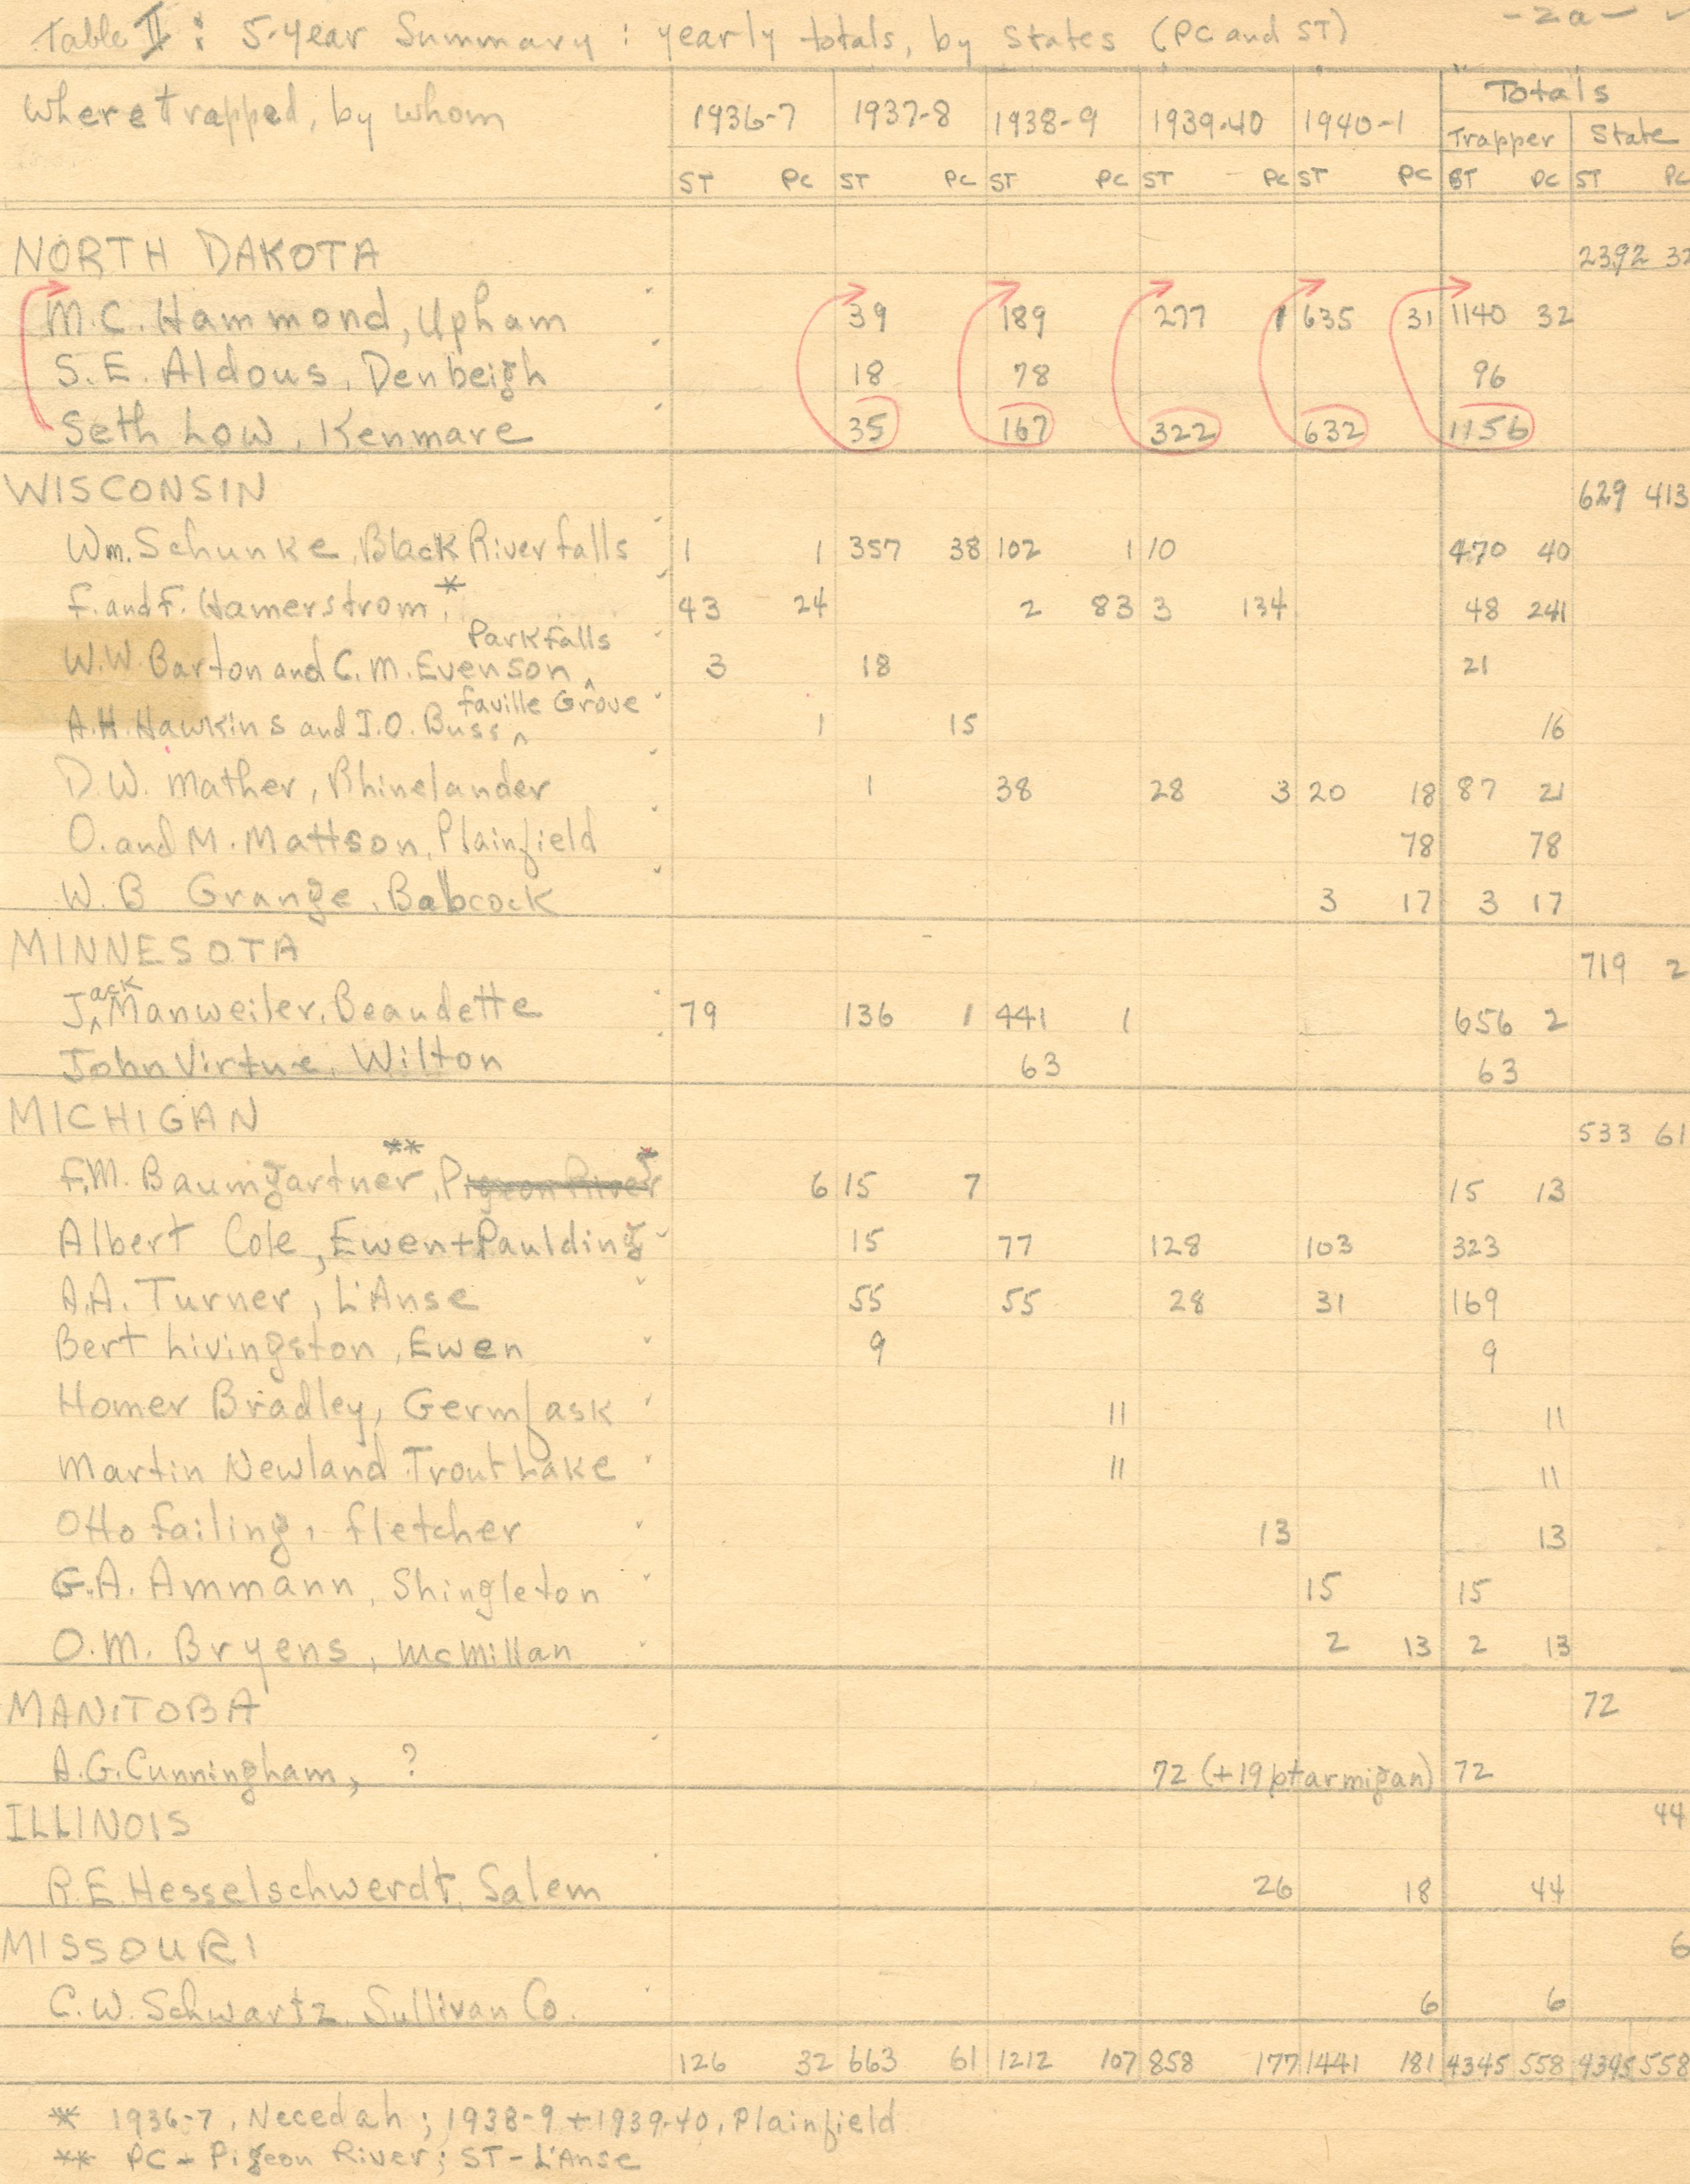 Table II : 5-year Summary : yearly totals, by States (PC and ST) -2a-
Where trapped, by whom 1936-7 1937-8 1938-9 1939-40 1940-1 Totals
Trapper State
ST PC ST PC ST PC ST PC ST PC ST PC ST PC
NORTH DAKOTA 2392 32
M.C. Hammond, Upham 39 189 277 1 635 31 1140 32
S.E. Aldous, Denbeigh 18 78 96
Seth Low, Kenmare 35 167 322 632 1156
WISCONSIN 629 413
Wm. Schunke, Black River falls 1 1 357 38 102 1 10 470 40
F. and F. Hamerstrom, * 43 24 2 83 3 134 48 241
Park Falls
W.W. Barton and C.M. Evenson ^ 3 18 21
Faville Grove
A.H. Hawkins and I.O. Buss ^ 1 15 16
D.W. Mather, Rhinelander 1 38 28 3 20 18 87 21
O. and M. Mattson, Plainfield 78 78
W.B Grange, Babcock 3 17 3 17
MINNESOTA 719 2
Jack Manweiler, Beaudette 79 136 1 441 1 656 2
John Virtue, Wilton 63 63
MICHIGAN 533 61
F.M. Baumgartner **, Pigeon River * 6 15 7 15 13
Albert Cole, Ewen + Paulding 15 77 128 103 323
A.A. Turner, L'Anse 55 55 28 31 169
Bert Livingston, Ewen 9 9
Homer Bradley, Germfask 11 11
Martin Newland Trout Lake 11 11
Otto Failing, Fletcher 13 13
G.A. Ammann, Shingleton 15 15
O.M. Bryens, McMillan 2 13 2 13
MANITOBA 72
A.G. Cunningham, ? 72 (+19 ptarmigan) 72
ILLINOIS 44
R.E. Hesselschwerdt, Salem 26 18 44
MISSOURI 6
C.W. Schwartz, Sullivan Co. 6 6
126 32 663 61 1212 107 858 177 1441 181 4345 558 4345 558
* 1936-7, Necedah; 1938-9 + 1939-40, Plainfield
** PC - Pigeon River; ST - L'Anse